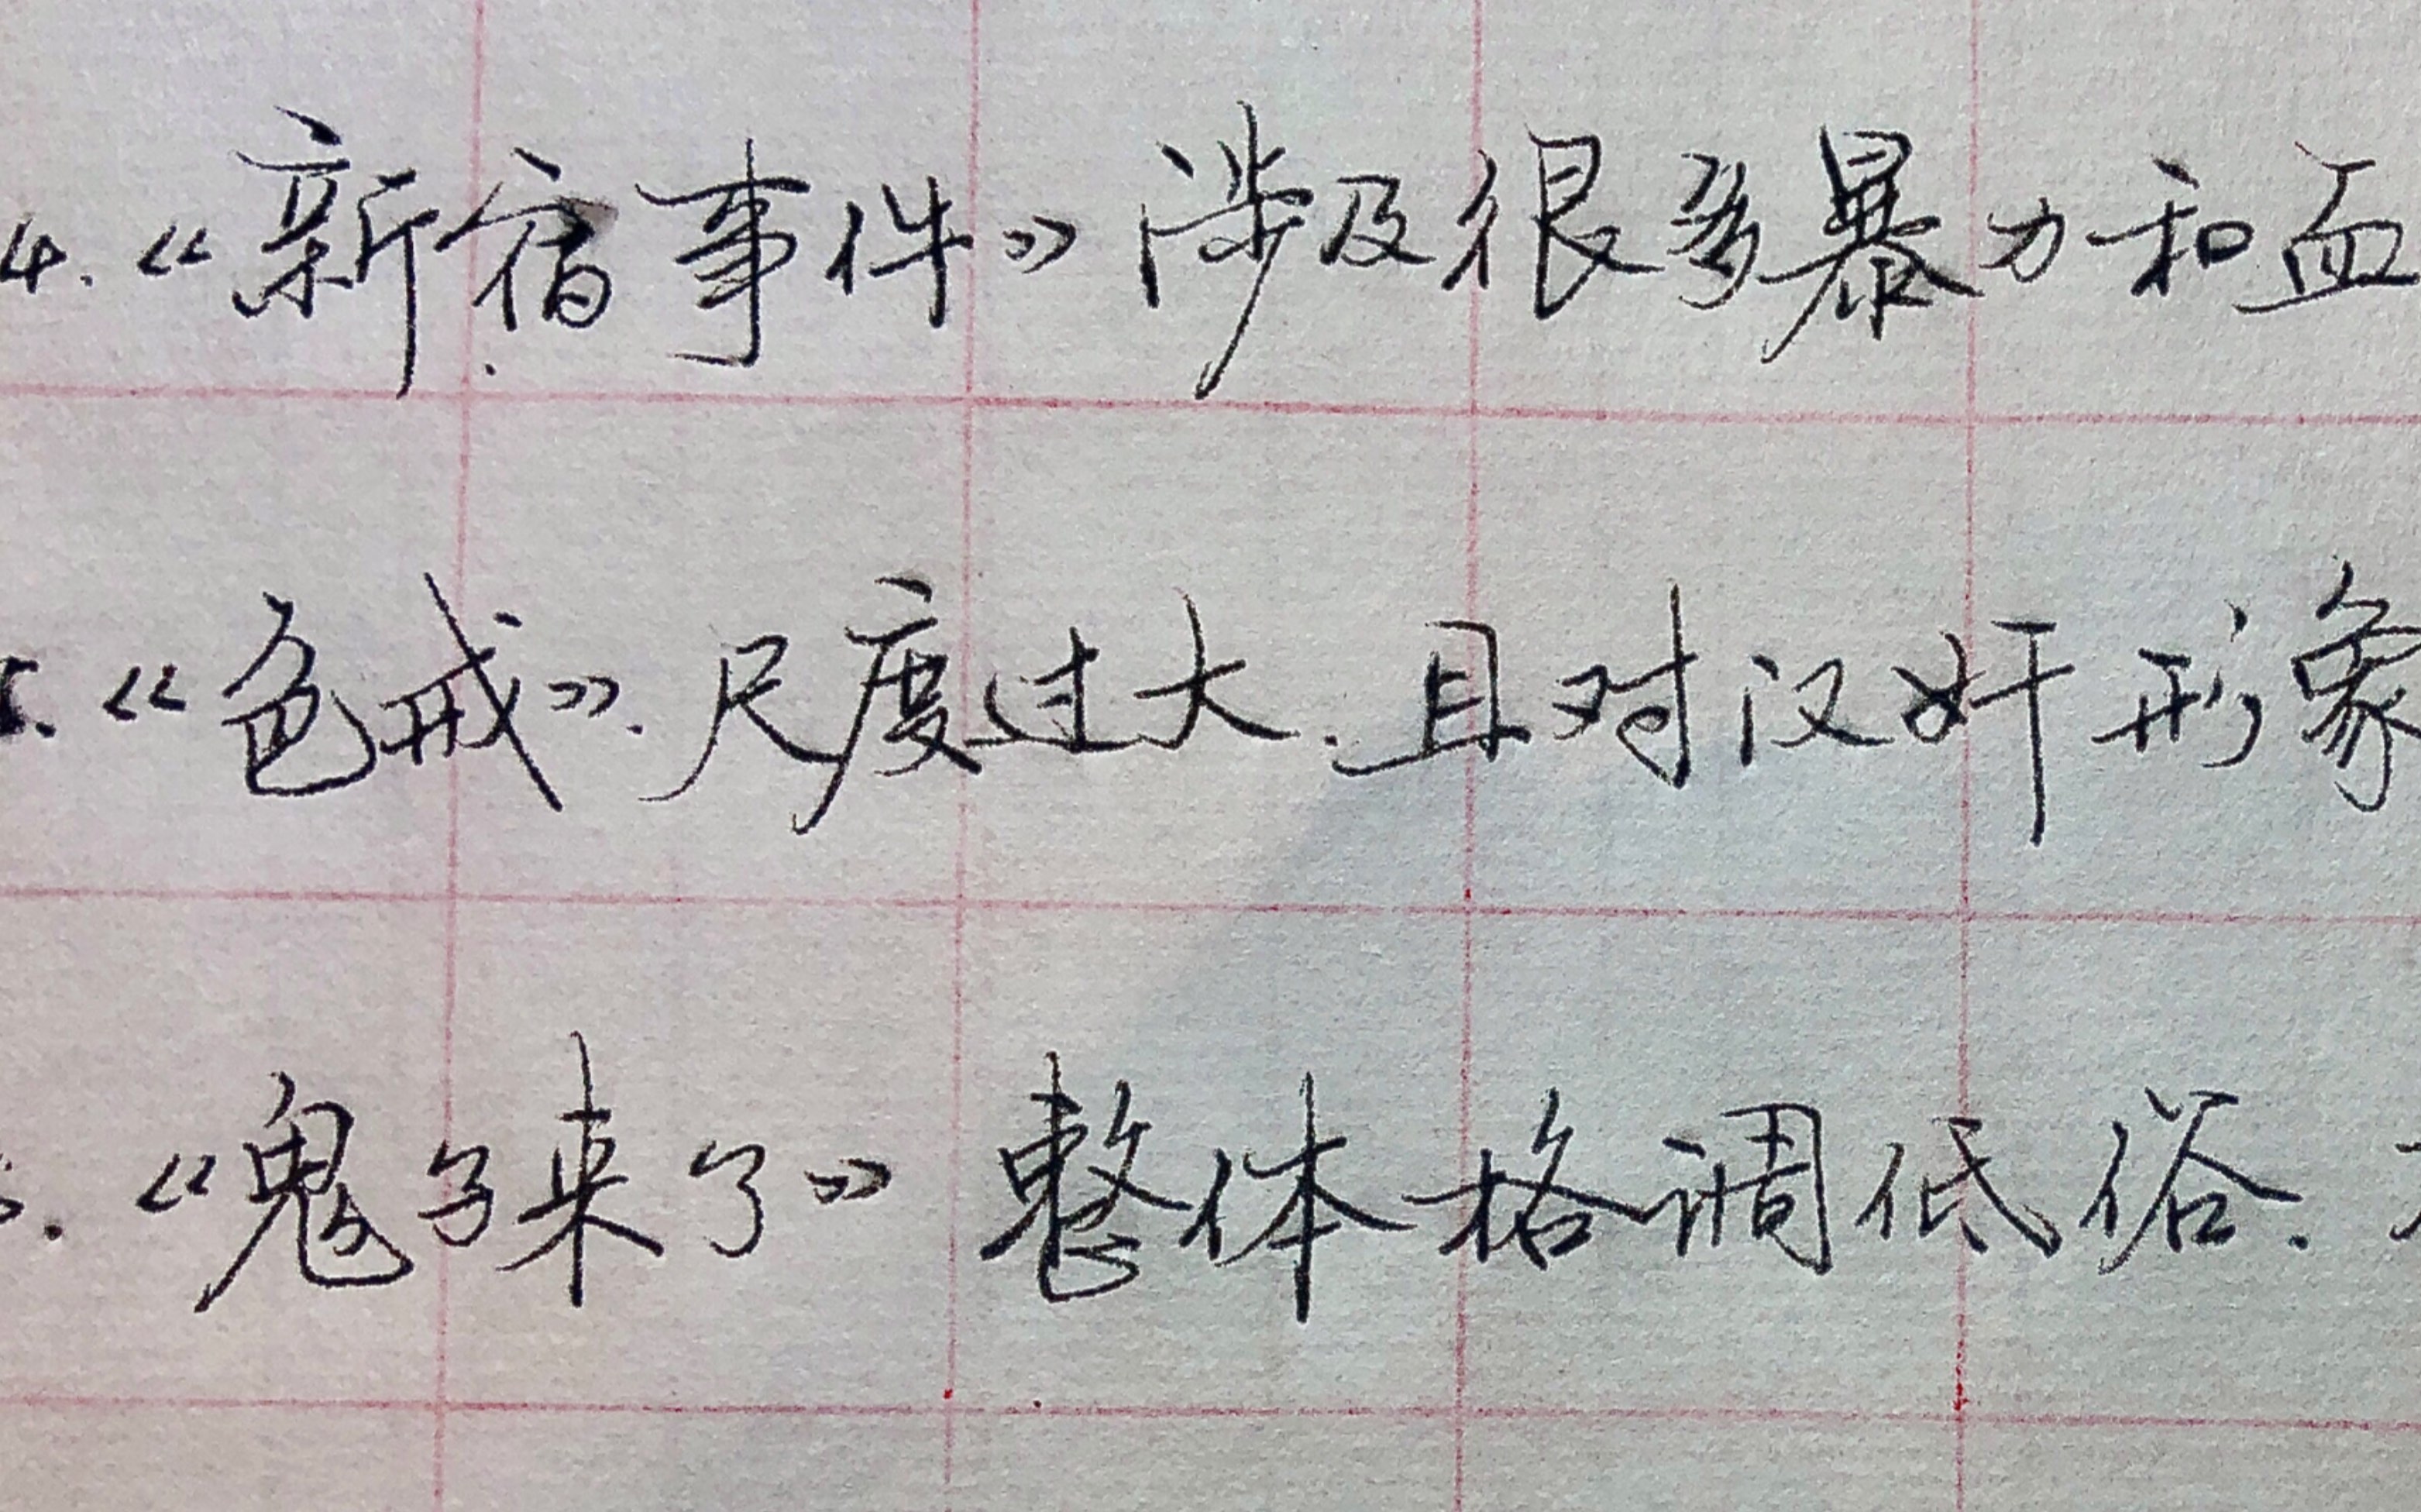 4.《新宿事件》涉及很多暴力和血
5.《色戒》.尺度过大.且对汉奸形象
.《鬼子来了》整体格调低俗.